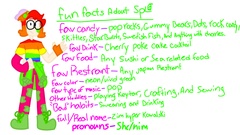 Fun facts About Spot
Fav candy - pop rocks, Gummy Bears, Dots, rock candy,
Fritters, Starbursts, Swedish Fish, and anything with cherries.
Fav Drink - Cherry poke cake cocktail
Fav food - Any Sushi or Sea related food
Fav Restraint - Any japan Restraint
Fav color - neon/lime green
Fav type of music - pop
Other Hobbies - playing Keytar, Crafting, And Sewing
"Bad" habits - Swearing and drinking
full/Real name - Zim kyber
pronouns - She/him